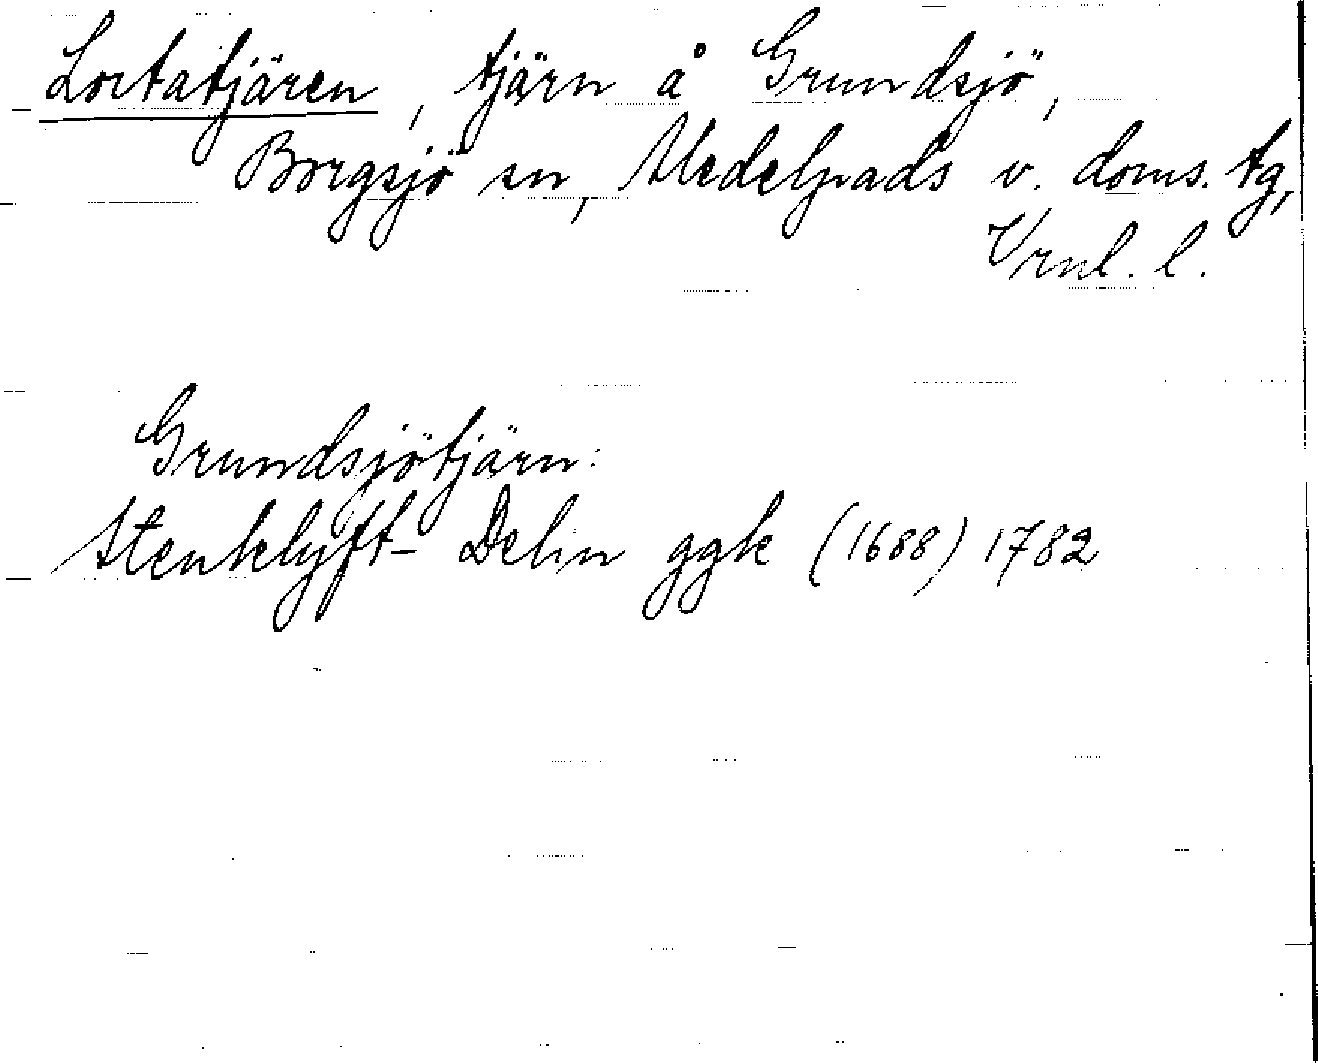 Lortatjären, tjärn å Grundsjö,
Borgsjö sn, Medelpads v. doms. tg,
Vrnl. l.
Grundsjötjärn:
Stenklyft- Delin ggk (1688) 1782